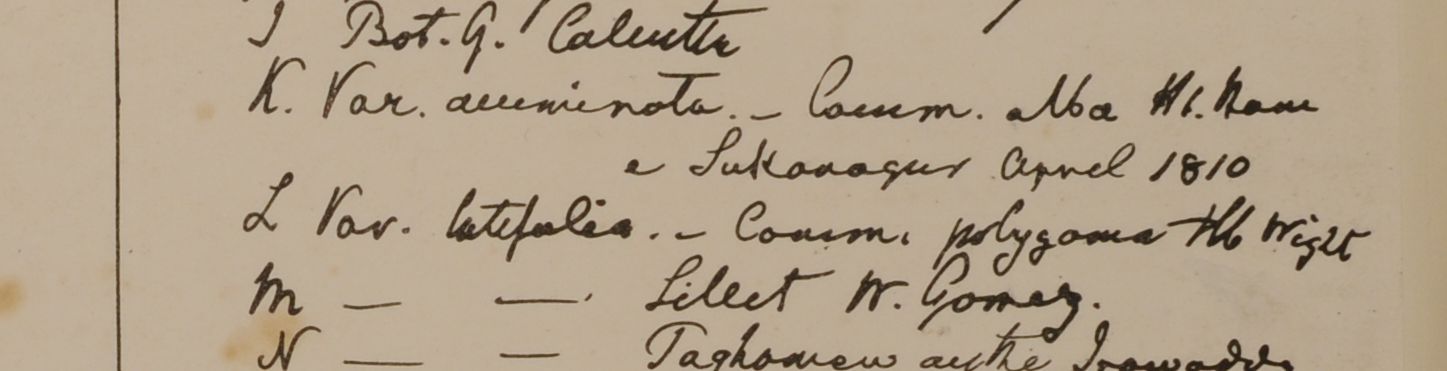 J Bot. G. Calcutta
K. Var. acuminata. - Comm. alba Hb. Ham
e Sukanagur April 1810
L Var. latifolia. - Comm. polygama Hb Wight
M — — Sillet W. Gomez.
N — — Taghomew on the Irawaddy